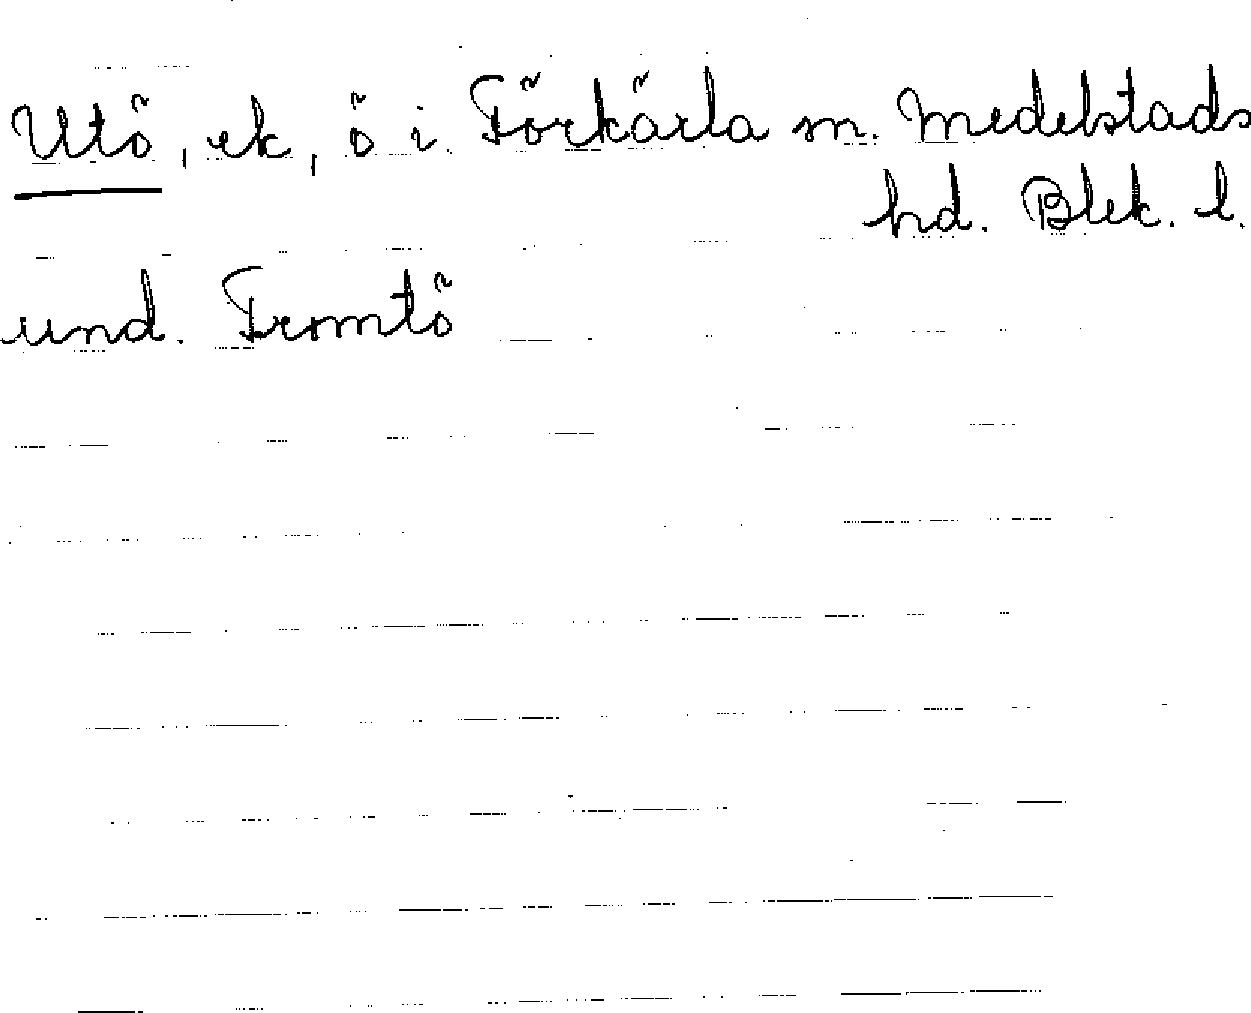 Utö, ek, ö i Förkärla sn. Medelstads
hd. Blek. l.
und. Tromtö